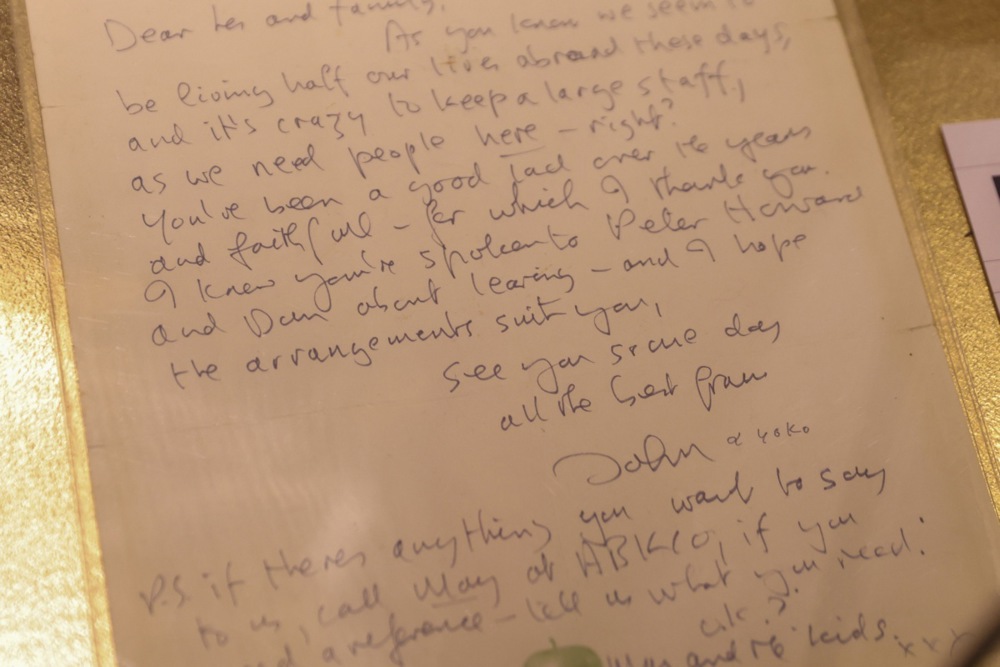 Dear Les and family,
As you know we seem to
be living half our lives abroad these days,
and it's crazy to keep a large staff,
as we need people here – right?
You've been a good lad over the years
and faithfull – for which I thank you.
I know you've spoken to Peter Howard
and Dan about leaving – and I hope
the arrangements suit you,
See you some day
all the best from
John & Yoko
P.S if theres anything you want to say
to us, call May at ABKCO, if you
a reference – tell us what you need.
ok?
and the kids. xxx